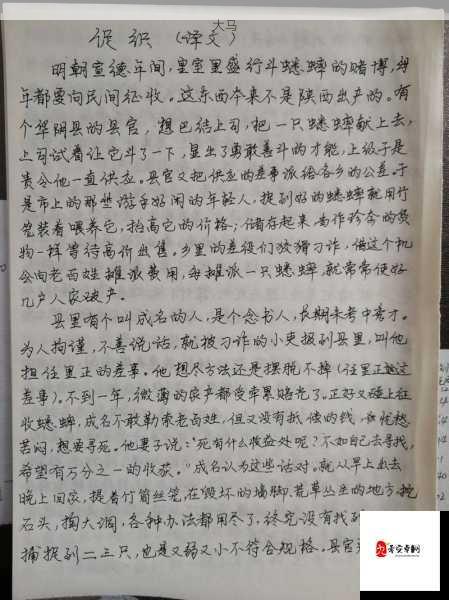 大马
促织（译文）
明朝宣德年间，皇室里盛行斗蟋蟀的赌博，每
年都要向民间征收。这东西本来不是陕西出产的。有
个华阴县的县官，想巴结上司，把一只蟋蟀献上去，
上司试着让它斗了一下，显出了勇敢善斗的才能，上级于是
责令他一直供应。县官又把供应的差事派给各乡的公差。于
是市上的那些游手好闲的年轻人，捉到好的蟋蟀就用竹
笼装着喂养它，抬高它的价格；储存起来，当作珍奇的货
物一样等待高价出售。乡里的差役们狡猾刁诈，借这个机
会向老百姓摊派费用，每摊派一只蟋蟀，就常常使好
几户人家破产。
县里有个叫成名的人，是个念书人，长期未考中秀才。
为人拘谨，不善说话，就被刁诈的小吏报到县里，叫他
担任里正的差事。他想尽方法还是摆脱不掉（任里正这
差事）。不到一年，微薄的家产都受牵累赔光了。正好又碰上征
收蟋蟀，成名不敢勒索老百姓，但又没有抵偿的钱，忧愁
苦闷，想要寻死。他妻子说：“死有什么益处呢？不如自己去寻找，
希望有万分之一的收获。”成名认为这些话对。就从早上出去，
晚上回家，提着竹筒丝笼，在毁坏的墙脚、荒草丛生的地方，挖
石头，掏大洞，各种办法都用尽了，终究没有找到
捕捉到二三只，也是又弱又小不符合规格。县官
考安卓网